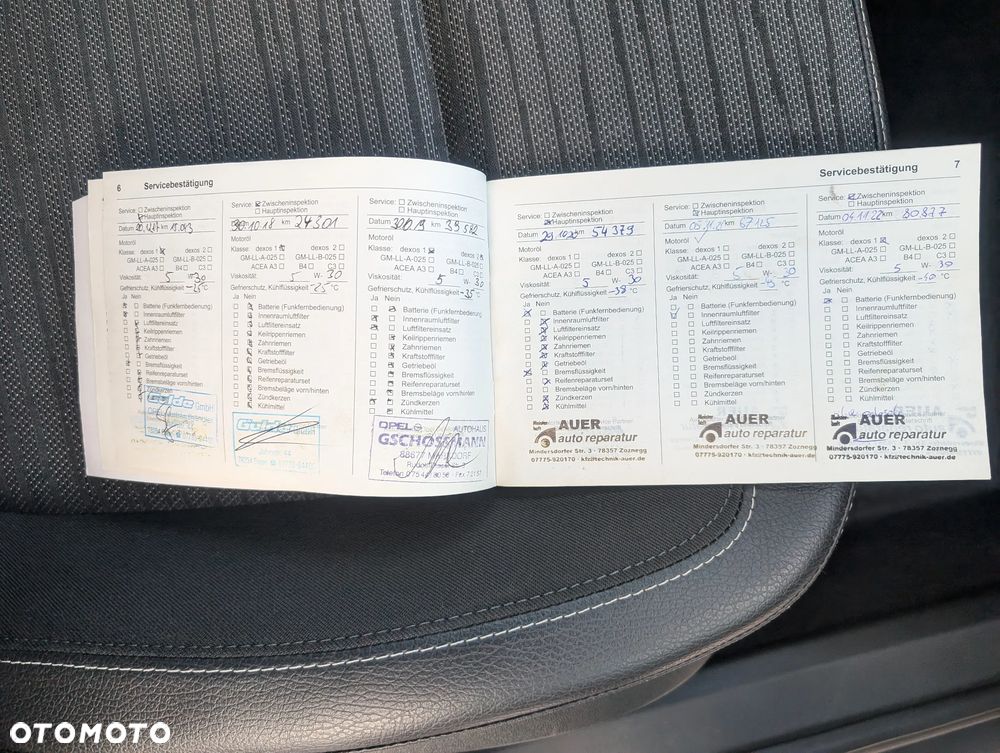 6 Servicebestätigung
Service: Zwischeninspektion
Hauptinspektion
Datum km
Motoröl
Klasse: dexos 1 dexos 2
GM-LL-A-025 GM-LL-B-025
ACEA A3 B4 C3
Viskosität 5 W- 30
Gefrierschutz, Kühlflüssigkeit °C
Ja Nein
Batterie (Funkfernbedienung)
Innenraumluftfilter
Luftfiltereinsatz
Keilrippenriemen
Zahnriemen
Kraftstofffilter
Getriebeöl
Bremsflüssigkeit
Reifenreparaturset
Bremsbeläge vorn/hinten
Service: Zwischeninspektion
Hauptinspektion
10 18 km 24301
Motoröl
Klasse: dexos 1 dexos 2
GM-LL-A-025 GM-LL-B-025
ACEA A3 B4 C3
Viskosität: 5 W- 30
Gefrierschutz, Kühlflüssigkeit -25 °C
Ja Nein
Batterie (Funkfernbedienung)
Innenraumluftfilter
Luftfiltereinsatz
Keilrippenriemen
Zahnriemen
Kraftstofffilter
Getriebeöl
Bremsflüssigkeit
Reifenreparaturset
Bremsbeläge vorn/hinten
Zündkerzen
Kühlmittel
Service: Zwischeninspektion
Hauptinspektion
Datum km
Motoröl
Klasse: dexos 1 dexos 2
GM-LL-A-025 GM-LL-B-025
ACEA A3 B4 C3
Viskosität: 5 W- 30
Gefrierschutz, Kühlflüssigkeit -35 °C
Ja Nein
Batterie (Funkfernbedienung)
Innenraumluftfilter
Luftfiltereinsatz
Keilrippenriemen
Zahnriemen
Kraftstofffilter
Getriebeöl
Bremsflüssigkeit
Reifenreparaturset
Bremsbeläge vorn/hinten
Zündkerzen
Kühlmittel
OPEL AUTOHAUS
GSCHOSSMANN
Servicebestätigung 7
Service: Zwischeninspektion
Hauptinspektion
Datum km 54379
Motoröl
Klasse: dexos 1 dexos 2
GM-LL-A-025 GM-LL-B-025
ACEA A3 B4 C3
Viskosität: 5 W- 30
Gefrierschutz, Kühlflüssigkeit -38 °C
Ja Nein
Batterie (Funkfernbedienung)
Innenraumluftfilter
Luftfiltereinsatz
Keilrippenriemen
Zahnriemen
Kraftstofffilter
Getriebeöl
Bremsflüssigkeit
Reifenreparaturset
Bremsbeläge vorn/hinten
Zündkerzen
Kühlmittel
AUER
auto reparatur
Mindersdorfer Str. 3 · 78357 Zoznegg
07775-920170 · kfz@technik-auer.de
Service: Zwischeninspektion
Hauptinspektion
Datum 05.11.21 km 67125
Motoröl
Klasse: dexos 1 dexos 2
GM-LL-A-025 GM-LL-B-025
ACEA A3 B4 C3
Viskosität: 5 W- 30
Gefrierschutz, Kühlflüssigkeit °C
Ja Nein
Batterie (Funkfernbedienung)
Innenraumluftfilter
Luftfiltereinsatz
Keilrippenriemen
Zahnriemen
Kraftstofffilter
Getriebeöl
Bremsflüssigkeit
Reifenreparaturset
Bremsbeläge vorn/hinten
Zündkerzen
Kühlmittel
AUER
auto reparatur
Mindersdorfer Str. 3 · 78357 Zoznegg
07775-920170 · kfz@technik-auer.de
Service: Zwischeninspektion
Hauptinspektion
Datum 04.11.22 km 80877
Motoröl
Klasse: dexos 1 dexos 2
GM-LL-A-025 GM-LL-B-025
ACEA A3 B4 C3
Viskosität: 5 W- 30
Gefrierschutz, Kühlflüssigkeit -40 °C
Ja Nein
Batterie (Funkfernbedienung)
Innenraumluftfilter
Luftfiltereinsatz
Keilrippenriemen
Zahnriemen
Kraftstofffilter
Getriebeöl
Bremsflüssigkeit
Reifenreparaturset
Bremsbeläge vorn/hinten
Zündkerzen
Kühlmittel
AUER
auto reparatur
Mindersdorfer Str. 3 · 78357 Zoznegg
07775-920170 · kfz@technik-auer.de
OTOMOTO